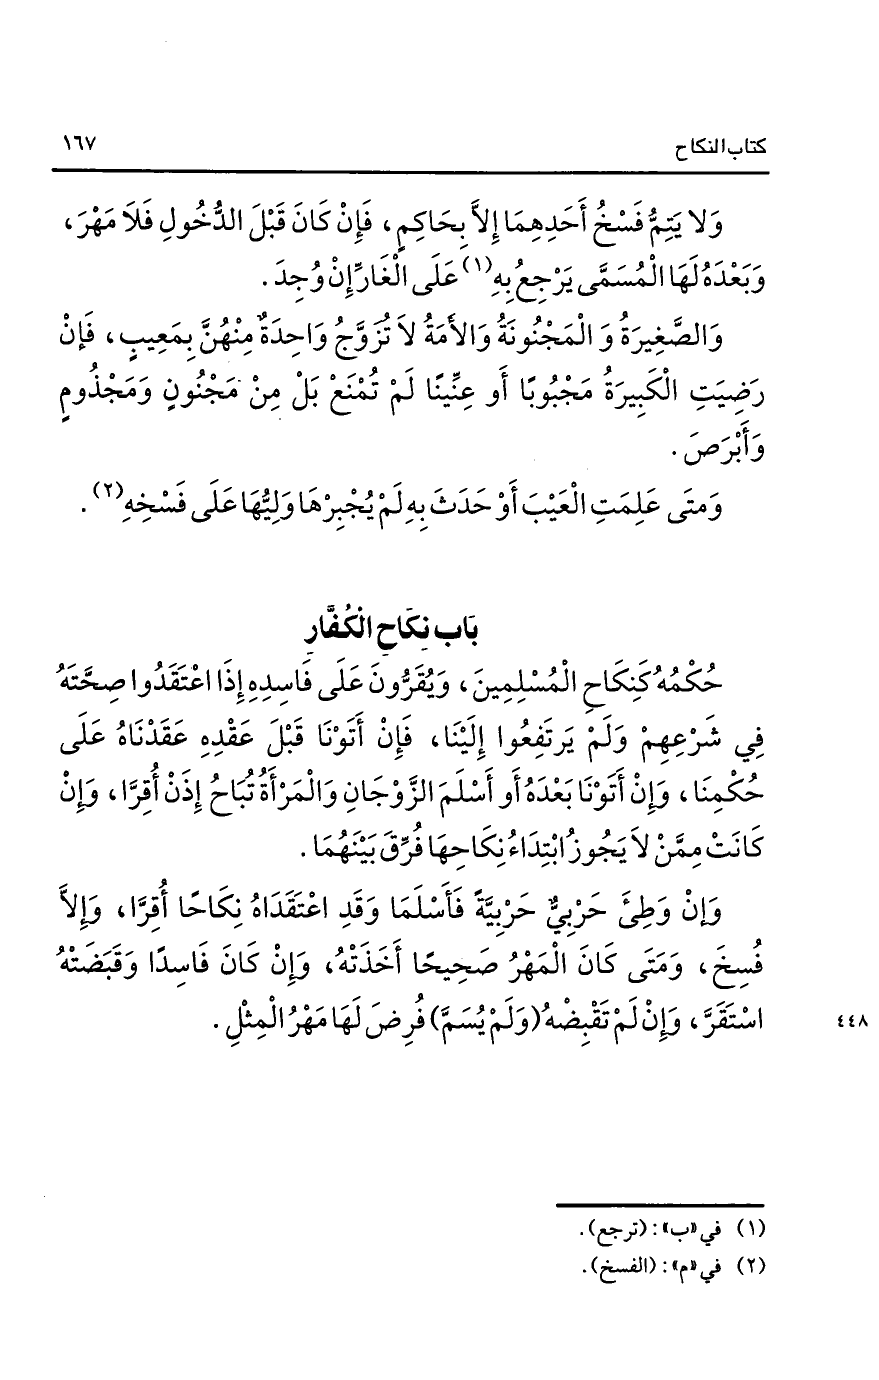 كتاب النكاح ١٦٧
وَلا يَتِمُّ فَسْخُ أَحَدِهِمَا إِلاَّ بِحَاكِمٍ، فَإِنْ كَانَ قَبْلَ الدُّخُولِ فَلَا مَهْرَ،
وَبَعْدَهُ لَهَا الْمُسَمَّى يَرْجِعُ بِهِ(١) عَلَى الْغَارِّ إِنْ وُجِدَ.
وَالصَّغِيرَةُ وَ الْمَجْنُونَةُ وَالأَمَةُ لاَ تُزَوَّجُ وَاحِدَةٌ مِنْهُنَّ بِمَعِيبٍ، فَإِنْ
رَضِيَتِ الْكَبِيرَةُ مَجْبُوبًا أَو عِنِّينًا لَمْ تُمْنَعْ بَلْ مِنْ مَجْنُونٍ وَمَجْذُومٍ
وَأَبْرَصَ.
وَمَتَى عَلِمَتِ الْعَيْبَ أَوْ حَدَثَ بِهِ لَمْ يُجْبِرْهَا وَلِيُّهَا عَلَى فَسْخِهِ(٢).
بَاب نِكَاحِ الْكُفَّارِ
حُكْمُهُ كَنِكَاحِ الْمُسْلِمِينَ، وَيُقَرُّونَ عَلَى فَاسِدِهِ إِذَا اعْتَقَدُوا صِحَّتَهُ
فِي شَرْعِهِمْ وَلَمْ يَرتَفِعُوا إِلَيْنَا، فَإِنْ أَتَوْنَا قَبْلَ عَقْدِهِ عَقَدْنَاهُ عَلَى
حُكْمِنَا، وَإِنْ أَتَوْنَا بَعْدَهُ أَو أَسْلَمَ الزَّوْجَانِ وَالْمَرْأَةُ تُبَاحُ إِذَنْ أُقِرَّا، وَإِنْ
كَانَتْ مِمَّنْ لاَ يَجُوزُ ابْتِدَاءُ نِكَاحِهَا فُرِّقَ بَيْنَهُمَا.
وَإِنْ وَطِئَ حَرْبِيٌّ حَرْبِيَّةً فَأَسْلَمَا وَقَدِ اعْتَقَدَاهُ نِكَاحًا أُقِرَّا، وَإِلاَّ
فُسِخَ، وَمَتَى كَانَ الْمَهْرُ صَحِيحًا أَخَذَتْهُ، وَإِنْ كَانَ فَاسِدًا وَقَبَضَتْهُ
اسْتَقَرَّ، وَإِنْ لَمْ تَقْبِضْهُ (وَلَمْ يُسَمَّ) فُرِضَ لَهَا مَهْرُ الْمِثْلِ. ٤٤٨
(١) في «ب»: (ترجع).
(٢) في «م»: (الفسخ).